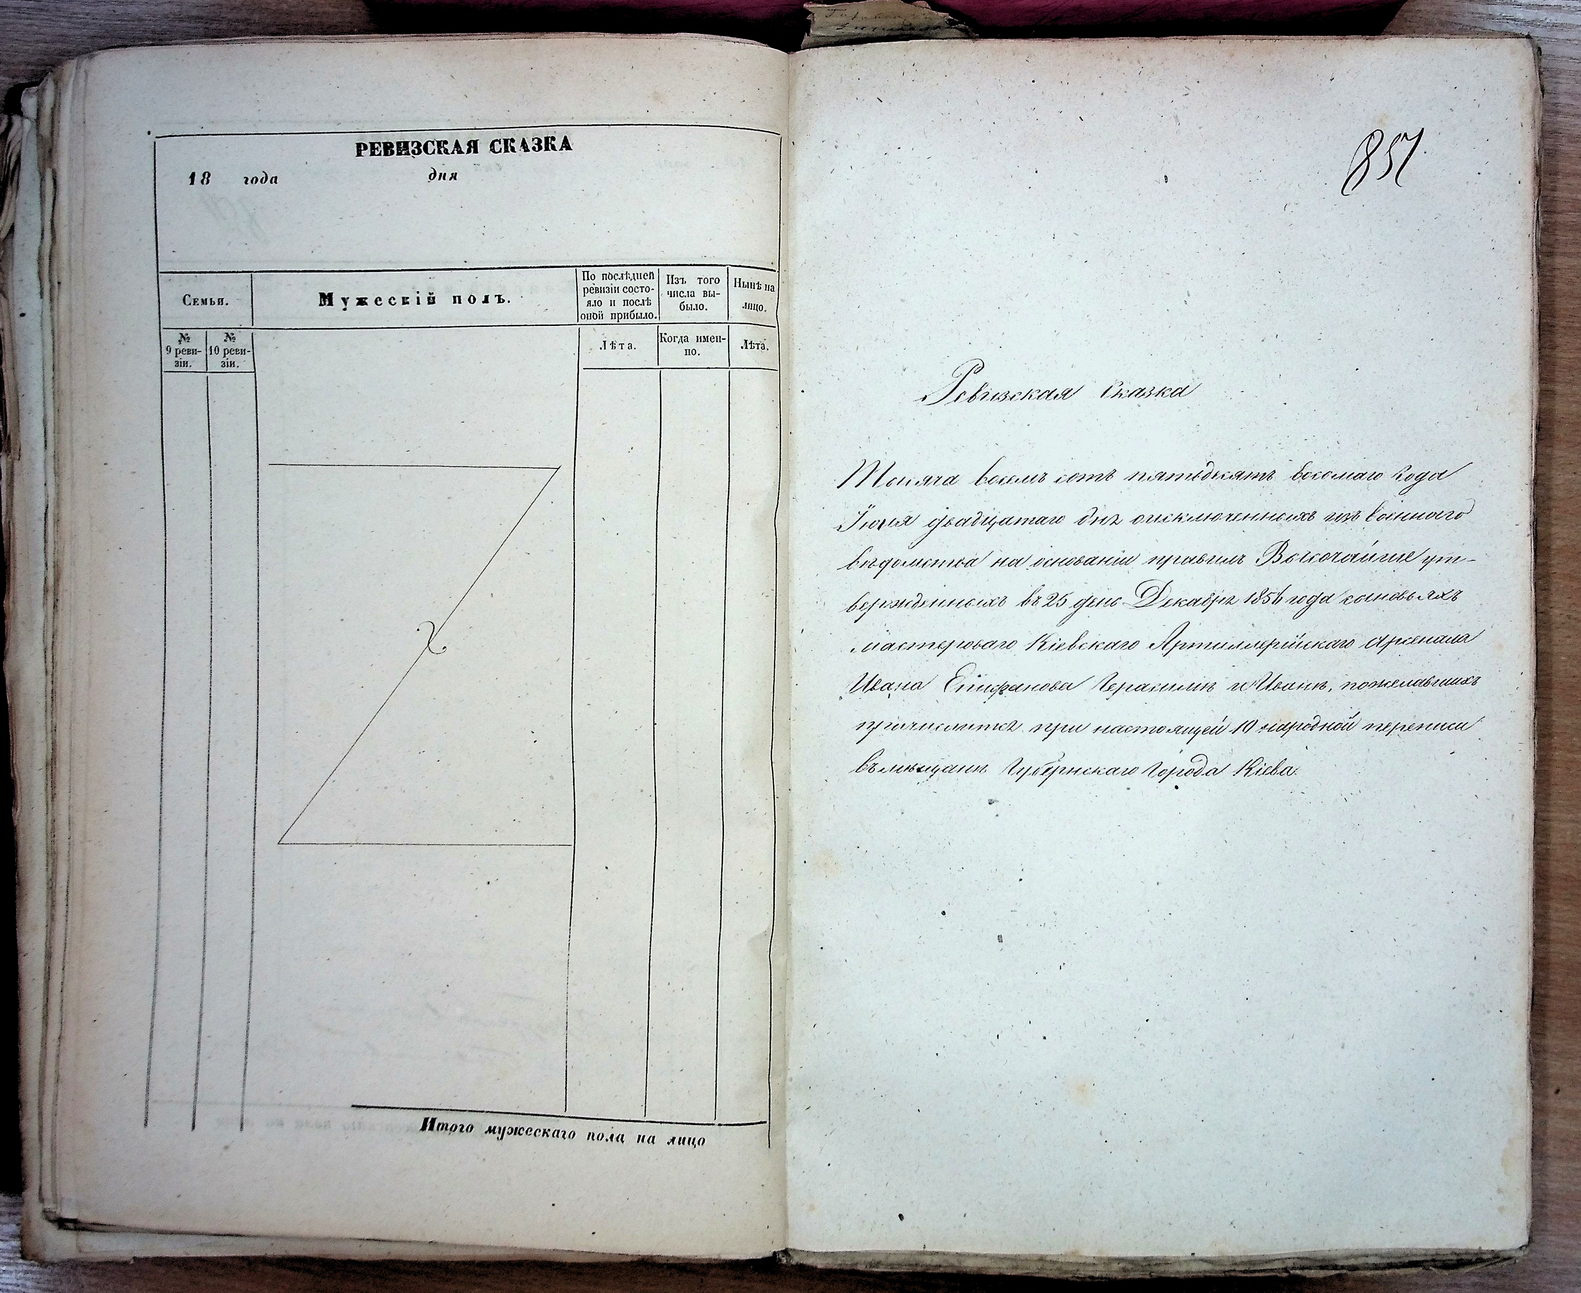 РЕВИЗСКАЯ СКАЗКА
18 года дня
Семьи.
Мужескій полъ.
По послѣдней
ревизіи состо-
яло и послѣ
оной прибыло.
Изъ того
числа вы-
было.
Нынѣ на
лицо.
№
9 реви-
зіи.
№
10 реви-
зіи.
Лѣта.
Когда имен-
но.
Лѣта.
Итого мужескаго пола на лицо
857
Ревизская сказка
Тысяча восемь сотъ пятьдесятъ восьмаго года
Іюля двадцатаго дня о исключенныхъ изъ военнаго
вѣдомства на основаніи правилъ Высочайше ут-
вержденныхъ въ 25 день Декабря 1856 года сыновьяхъ
мастероваго Кіевскаго Артиллерійскаго Арсенала
Ивана Епифанова Герасимѣ и Иванѣ, пожелавшихъ
причислится при настоящей 10 народной переписи
въ мѣщане Губернскаго Города Кіева.